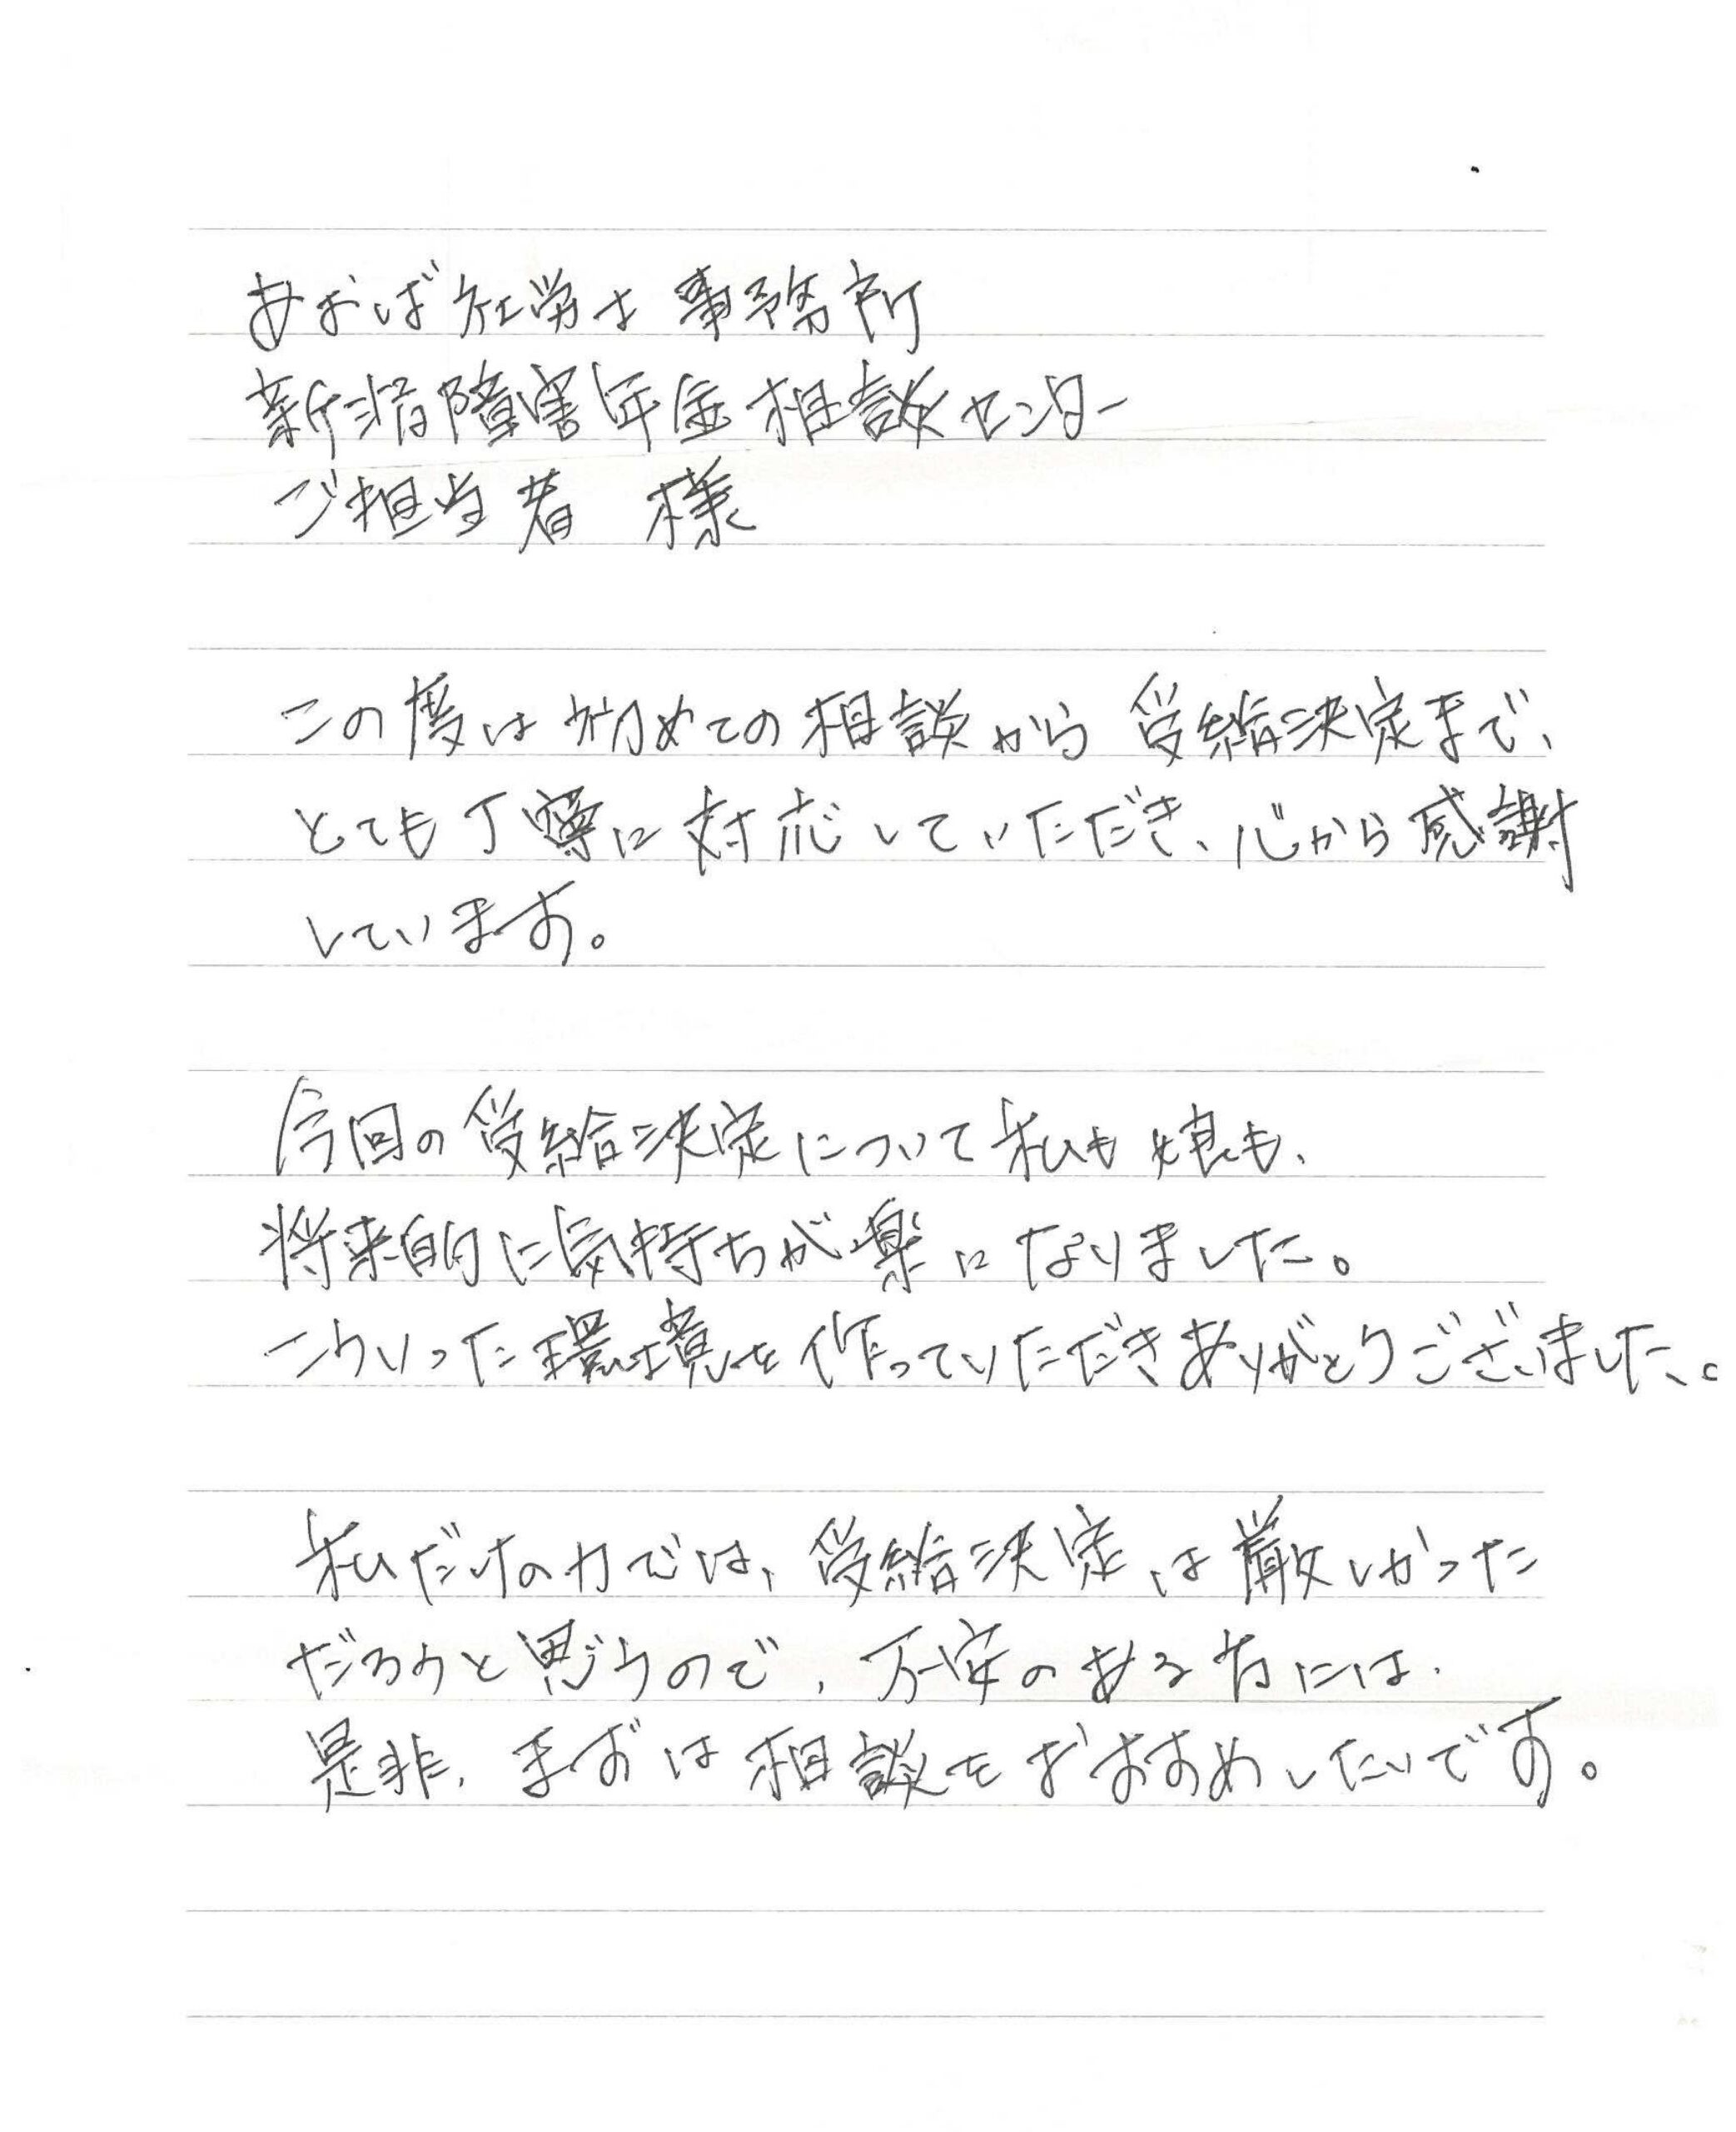 あおば社労士事務所
新潟障害年金相談センター
ご担当者 様
この度は初めての相談から受給決定まで、
とても丁寧に対応していただき、心から感謝
しています。
今回の受給決定について私も娘も、
将来的に気持ちが楽になりました。
こういった環境を作っていただきありがとうございました。
私だけの力では、受給決定は厳しかった
だろうと思うので、不安のある方には
是非、まずは相談をおすすめしたいです。